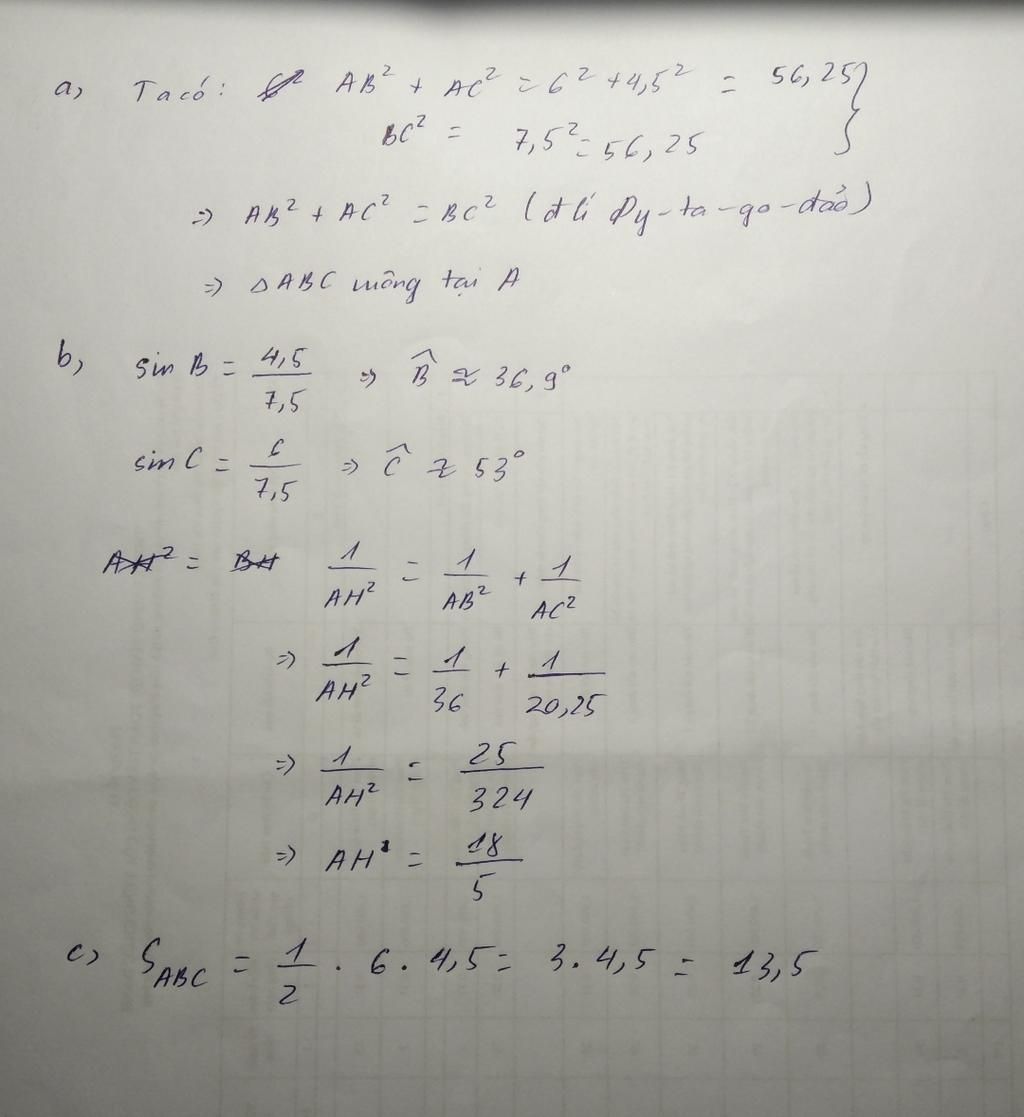 a, Ta có: AB² + AC² = 6² + 4,5² = 56,25
BC² = 7,5² = 56,25
=> AB² + AC² = BC² (đ lí Py-ta-go-đảo)
=> △ABC vuông tại A
b, sin B = 4,5/7,5 => B̂ ≈ 36,9°
sin C = 6/7,5 => Ĉ ≈ 53°
AH² = BH 1/AH² = 1/AB² + 1/AC²
=> 1/AH² = 1/36 + 1/20,25
=> 1/AH² = 25/324
=> AH = 18/5
c, S_ABC = 1/2 . 6 . 4,5 = 3 . 4,5 = 13,5